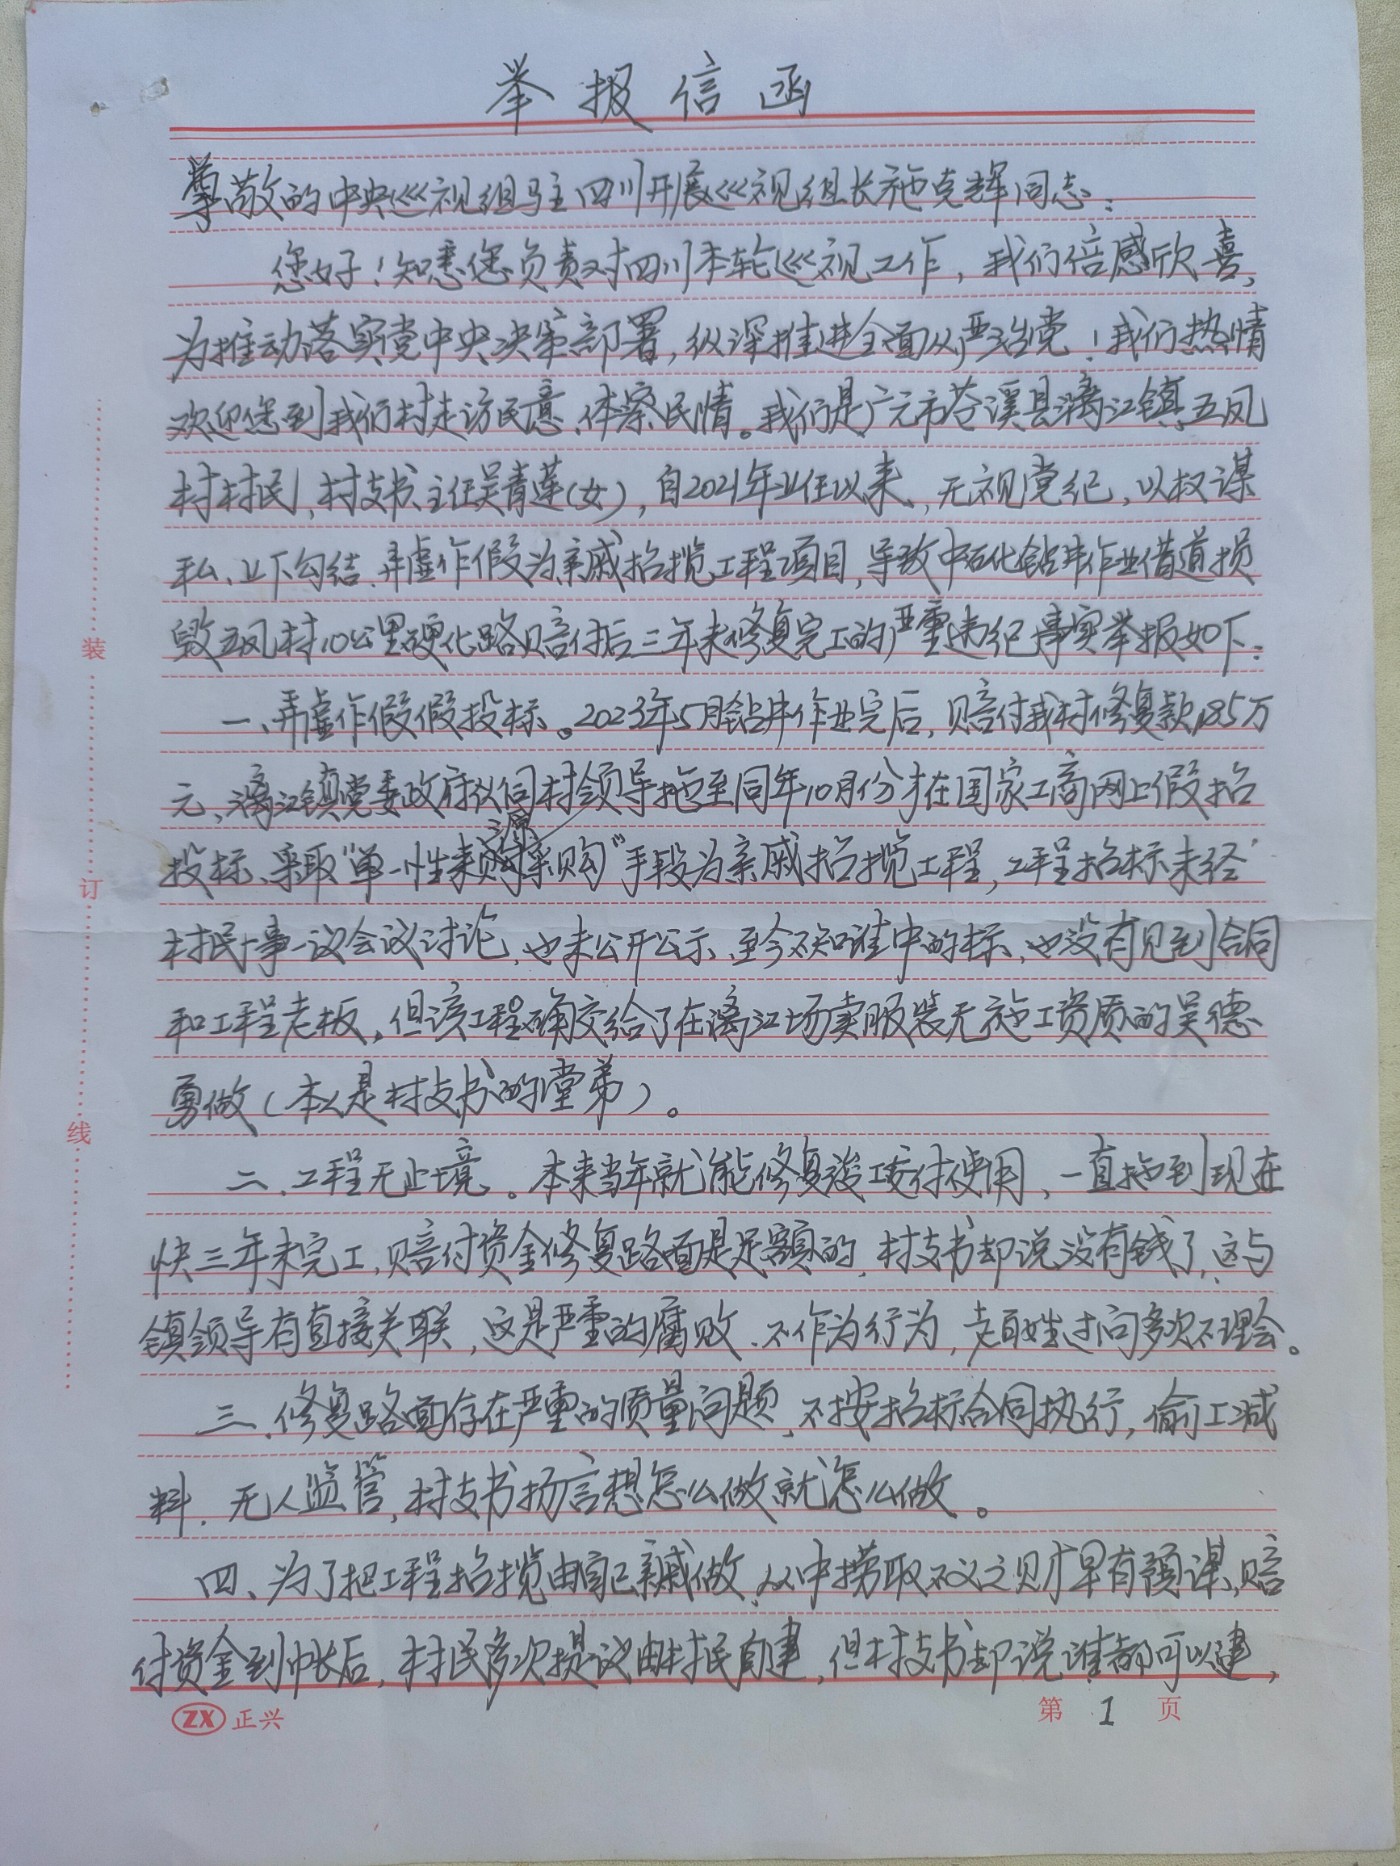 举报信函
尊敬的中央巡视组驻四川开展巡视组长施克辉同志：
您好！知悉您负责对四川本轮巡视工作，我们倍感欣喜，
为推动落实党中央决策部署，纵深推进全面从严治党！我们热情
欢迎您到我们村走访民意、体察民情。我们是广元市苍溪县漓江镇五凤
村村民，村支书、主任吴青莲（女），自2021年上任以来、无视党纪，以权谋
私、上下勾结、弄虚作假为亲戚招揽工程项目，导致中石化钻井作业借道损
毁五凤村10公里硬化路赔付后三年未修复完工的严重违纪事实举报如下：
一、弄虚作假假投标。2023年5月钻井作业完后，赔付我村修复款185万
元、漓江镇党委政府伙同村领导拖至同年10月份才在国家工商网上假招
投标、采取“单一性来源采购”手段为亲戚招揽工程，工程招标未经
村民一事一议会议讨论，也未公开公示、至今不知谁中的标、也没有见到合同
和工程老板，但该工程确交给了在漓江场卖服装无施工资质的吴德
勇做（本人是村支书的堂弟）。
二、工程无止境。本来当年就能修复竣工交付使用、一直拖到现在
快三年未完工，赔付资金修复路面是足额的，村支书却说没有钱了，这与
镇领导有直接关联，这是严重的腐败、不作为行为，老百姓过问多次不理会。
三、修复路面存在严重的质量问题，不按招标合同执行，偷工减
料、无人监管，村支书扬言想怎么做就怎么做。
四、为了把工程招揽由自己亲戚做、从中捞取不义之财早有预谋，赔
付资金到帐后，村民多次提议由村民自建，但村支书却说谁都可以建，
装
订
线
ZX 正兴
第 1 页